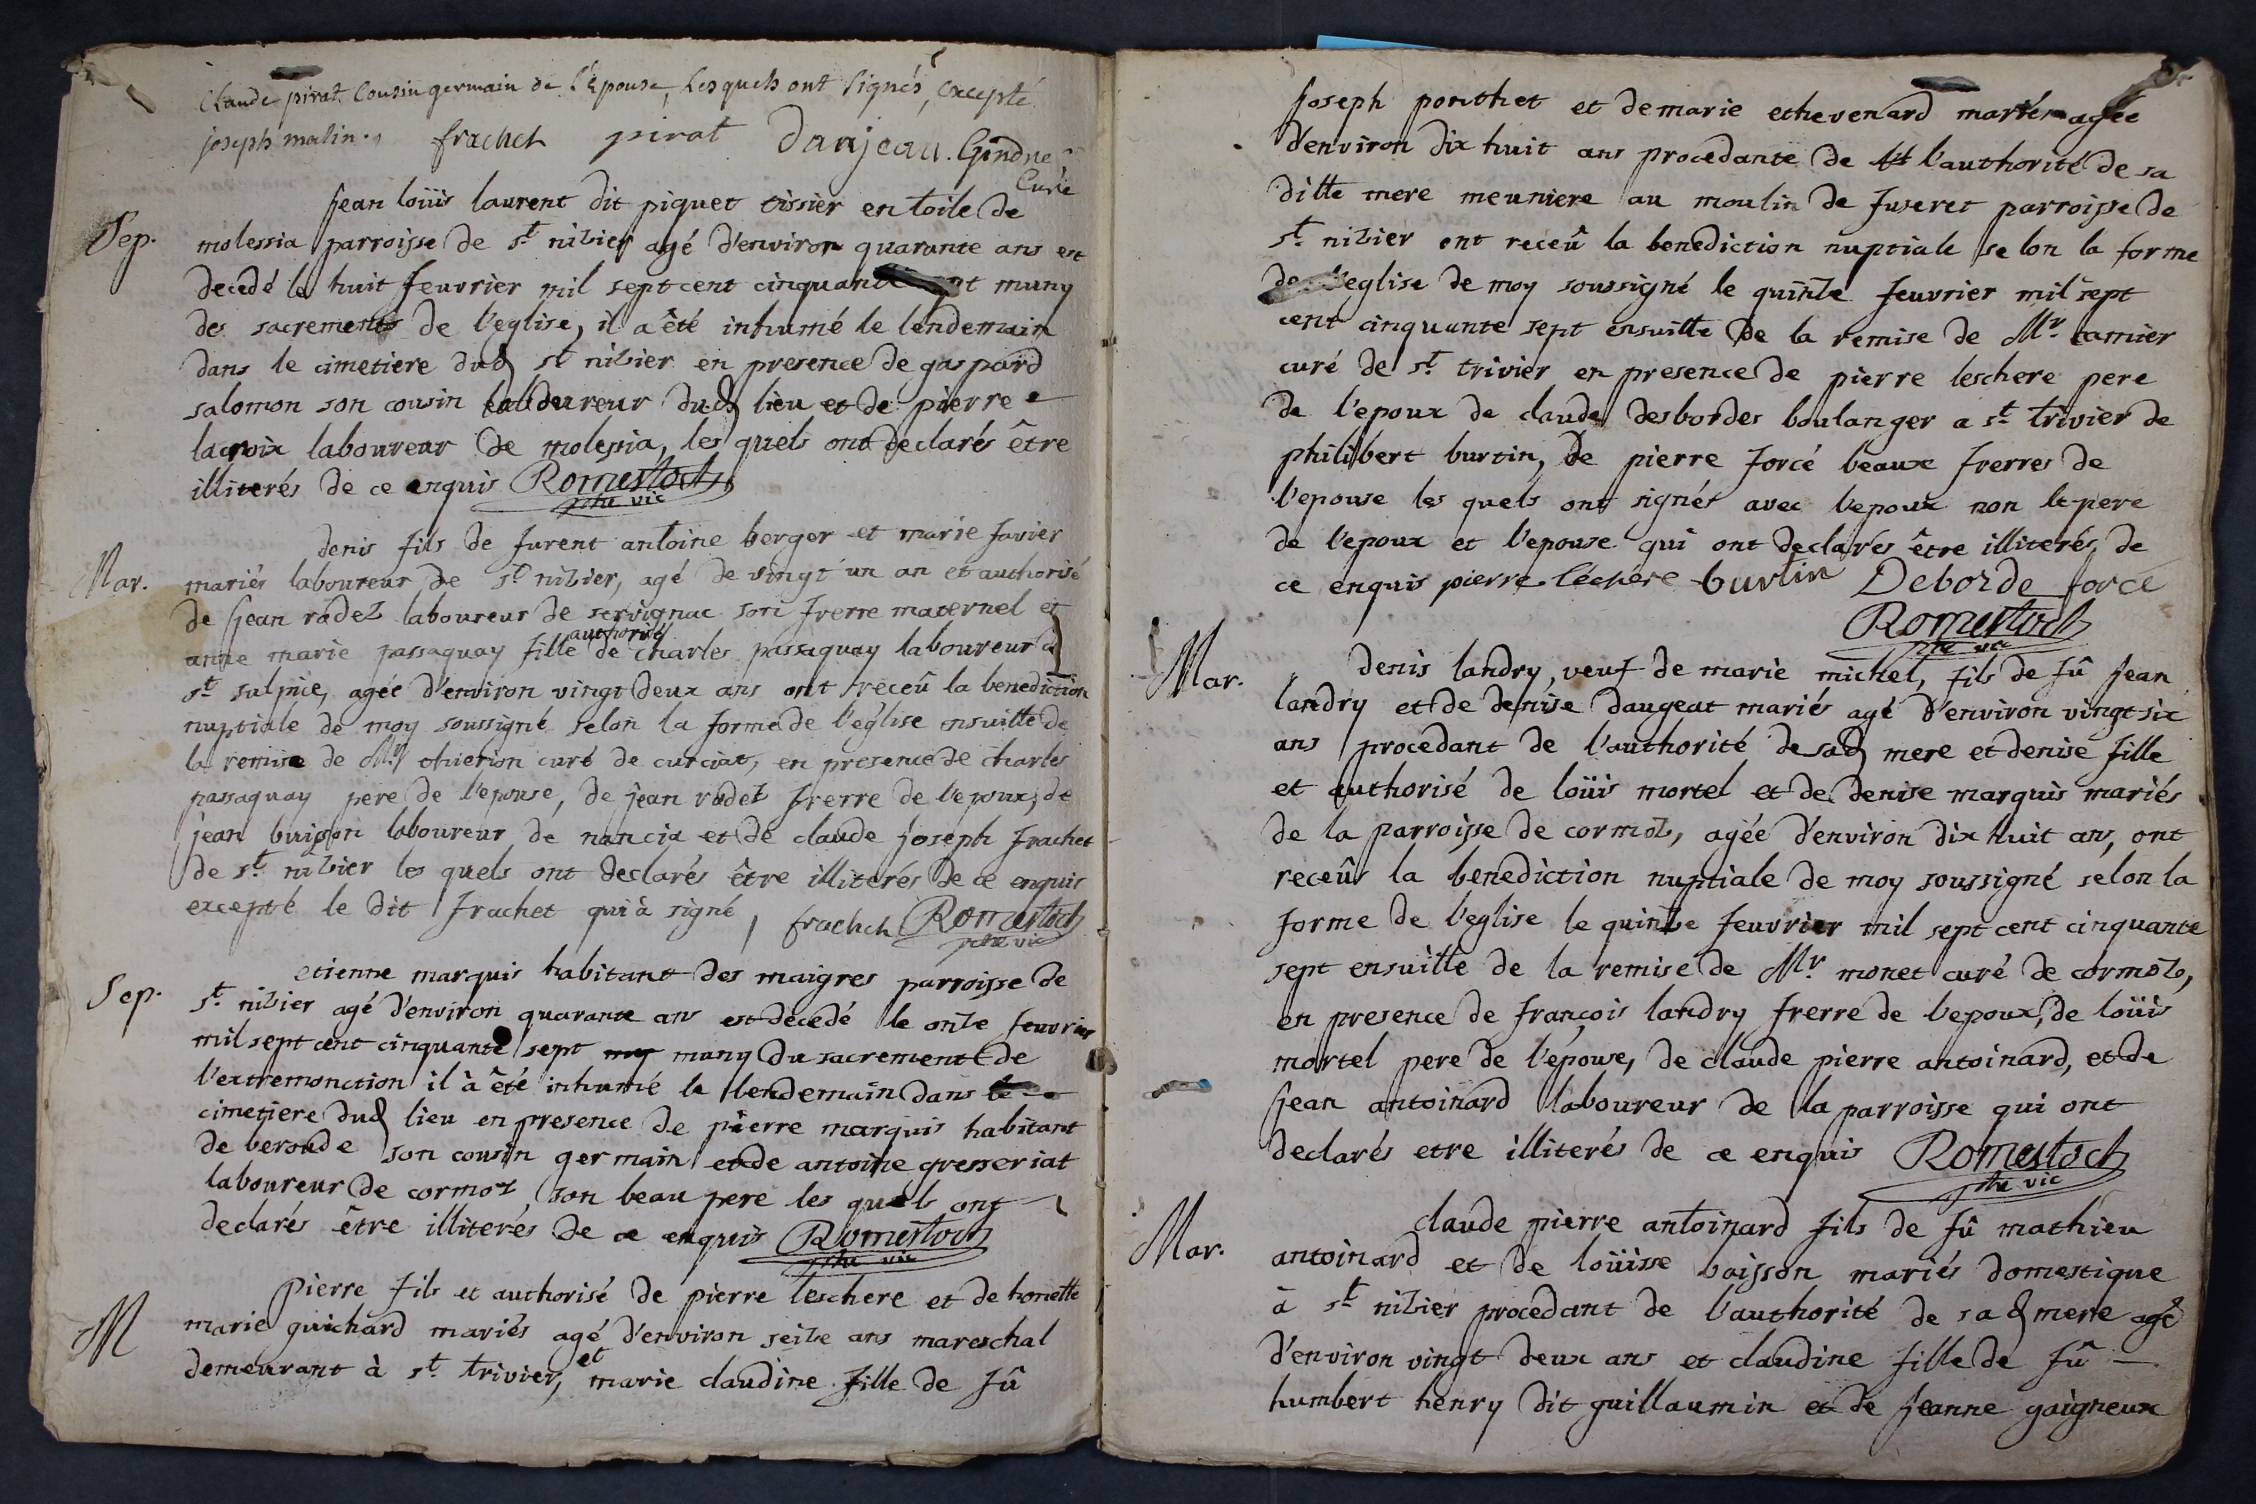 Claude pirat Cousin germain de l'Epouse, Lesquels ont signés, excepté
joseph malin. frachet pirat Danjean. Gindre
Curé
Sep.
jean loüis laurent dit piquet tissier en toile de
molessia parroisse de st nizier agé d'environ quarante ans est
decedé le huit feuvrier mil sept cent cinquante muny
des sacrements de l'eglise, il a été inhumé le lendemain
dans le cimetiere dud st nizier en presence de gaspard
salomon son cousin laboureur dud lieu et de pierre
lacroix laboureur de molessia, les quels ont declarés être
illiterés de ce enquis Romestoch
ptre vic
Mar.
denis fils de furent antoine berger et marie favier
mariés laboureur de st nizier, agé de vingt un an et authorisé
de jean rodet laboureur de servignac son frerre maternel et
anne marie passaquay fille authorisé de charles passaquay laboureur à
st sulpice, agée d'environ vingt deux ans ont receû la benediction
nuptiale de moy soussigné selon la forme de l'eglise ensuitte de
la remise de Mr thierion curé de curciat, en presence de charles
passaquay pere de l'epouse, de jean rodet frerre de l'epoux, de
jean buisson laboureur de nancia et de claude joseph frachet
de st nizier les quels ont declarés être illiterés de ce enquis
excepté le dit frachet qui à signé, frachet Romestoch
ptre vic
Sep.
etienne marquis habitant des maigres parroisse de
st nizier agé d'environ quarante ans est decedé le onze feuvrier
mil sept cent cinquante sept muny du sacrement de
l'extremonction il à été inhumé le lendemain dans le
cimetiere dud lieu en presence de pierre marquis habitant
de beroude son cousin germain et de antoine gresseriat
laboureur de cormoz son beau pere les quels ont
declarés être illiterés de ce enquis Romestoch
ptre vic
M
Pierre fils et authorisé de pierre leschere et de honette
marie guichard mariés agé d'environ seize ans mareschal
demeurant à st trivier, et marie claudine fille de fû
joseph ponthet et de marie ethevenard mariés agée
d'environ dix huit ans procedante de l'authorité de sa
ditte mere meuniere au moulin de fuseret parroisse de
st nizier ont receû la benediction nuptiale selon la forme
de l'eglise de moy soussigné le quinze feuvrier mil sept
cent cinquante sept ensuitte de la remise de Mr camier
curé de st trivier en presence de pierre leschere pere
de l'epoux de claude desbordes boulanger a st trivier de
philibert burtin, de pierre forcé beaux frerres de
l'epouse les quels ont signés avec l'epoux non le pere
de l'epoux et l'epouse qui ont declarés être illiterés, de
ce enquis pierre léchére burtin Deborde forcé
Romestoch
ptre vic
Mar.
denis landry, veuf de marie michel, fils de fû jean
landry et de denise daugeat mariés agé d'environ vingt six
ans procedant de l'authorité de sad mere et denise fille
et authorisé de loüis mortel et de denise marquis mariés
de la parroisse de cormoz, agée d'environ dix huit ans, ont
receûs la benediction nuptiale de moy soussigné selon la
forme de l'eglise le quinze feuvrier mil sept cent cinquante
sept ensuitte de la remise de Mr monet curé de cormoz,
en presence de françois landry frerre de l'epoux, de loüis
mortel pere de l'épouse, de claude pierre antoinard, et de
jean antoinard laboureur de la parroisse qui ont
declarés etre illiterés de ce enquis Romestoch
ptre vic
Mar.
claude pierre antoinard fils de fû mathieu
antoinard et de loüisse boisson mariés domestique
à st nizier procedant de l'authorité de sad mere agé
d'environ vingt deux ans et claudine fille de fû
humbert henry dit guillaumin et de jeanne gaigneux